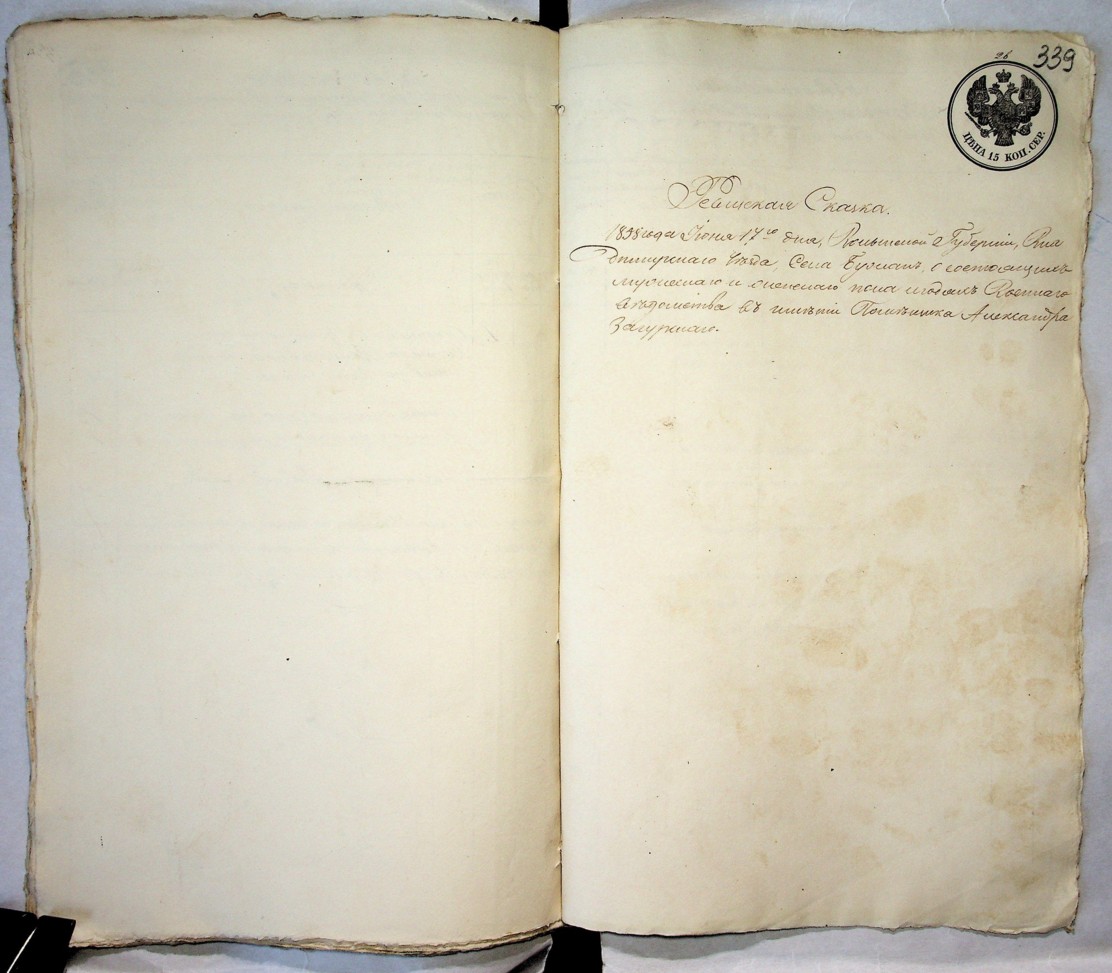 26
339
ЦѢНА 15 КОП. СЕР.
Ревизская Сказка.
1858 года Іюня 17го дня, Волынской Губерніи, Вла
димирскаго Уѣзда, Села, о состоящихъ
мужескаго и женскаго пола людяхъ Военнаго
вѣдомства въ имѣніи Помѣщика Александра
Загурскаго.